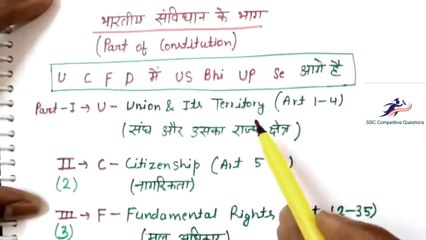 भारतीय संविधान के भाग
(Part of Constitution)
U C F D में US Bhi UP Se आगे है
Part-I → U- Union & Its Territory (Art 1-4)
(संघ और उसका राज्य क्षेत्र)
II → C- Citizenship (Art 5
(2) (नागरिकता)
III → F- Fundamental Rights 12-35)
(3) (मूल अधिकार)
SSC Competitive Questions